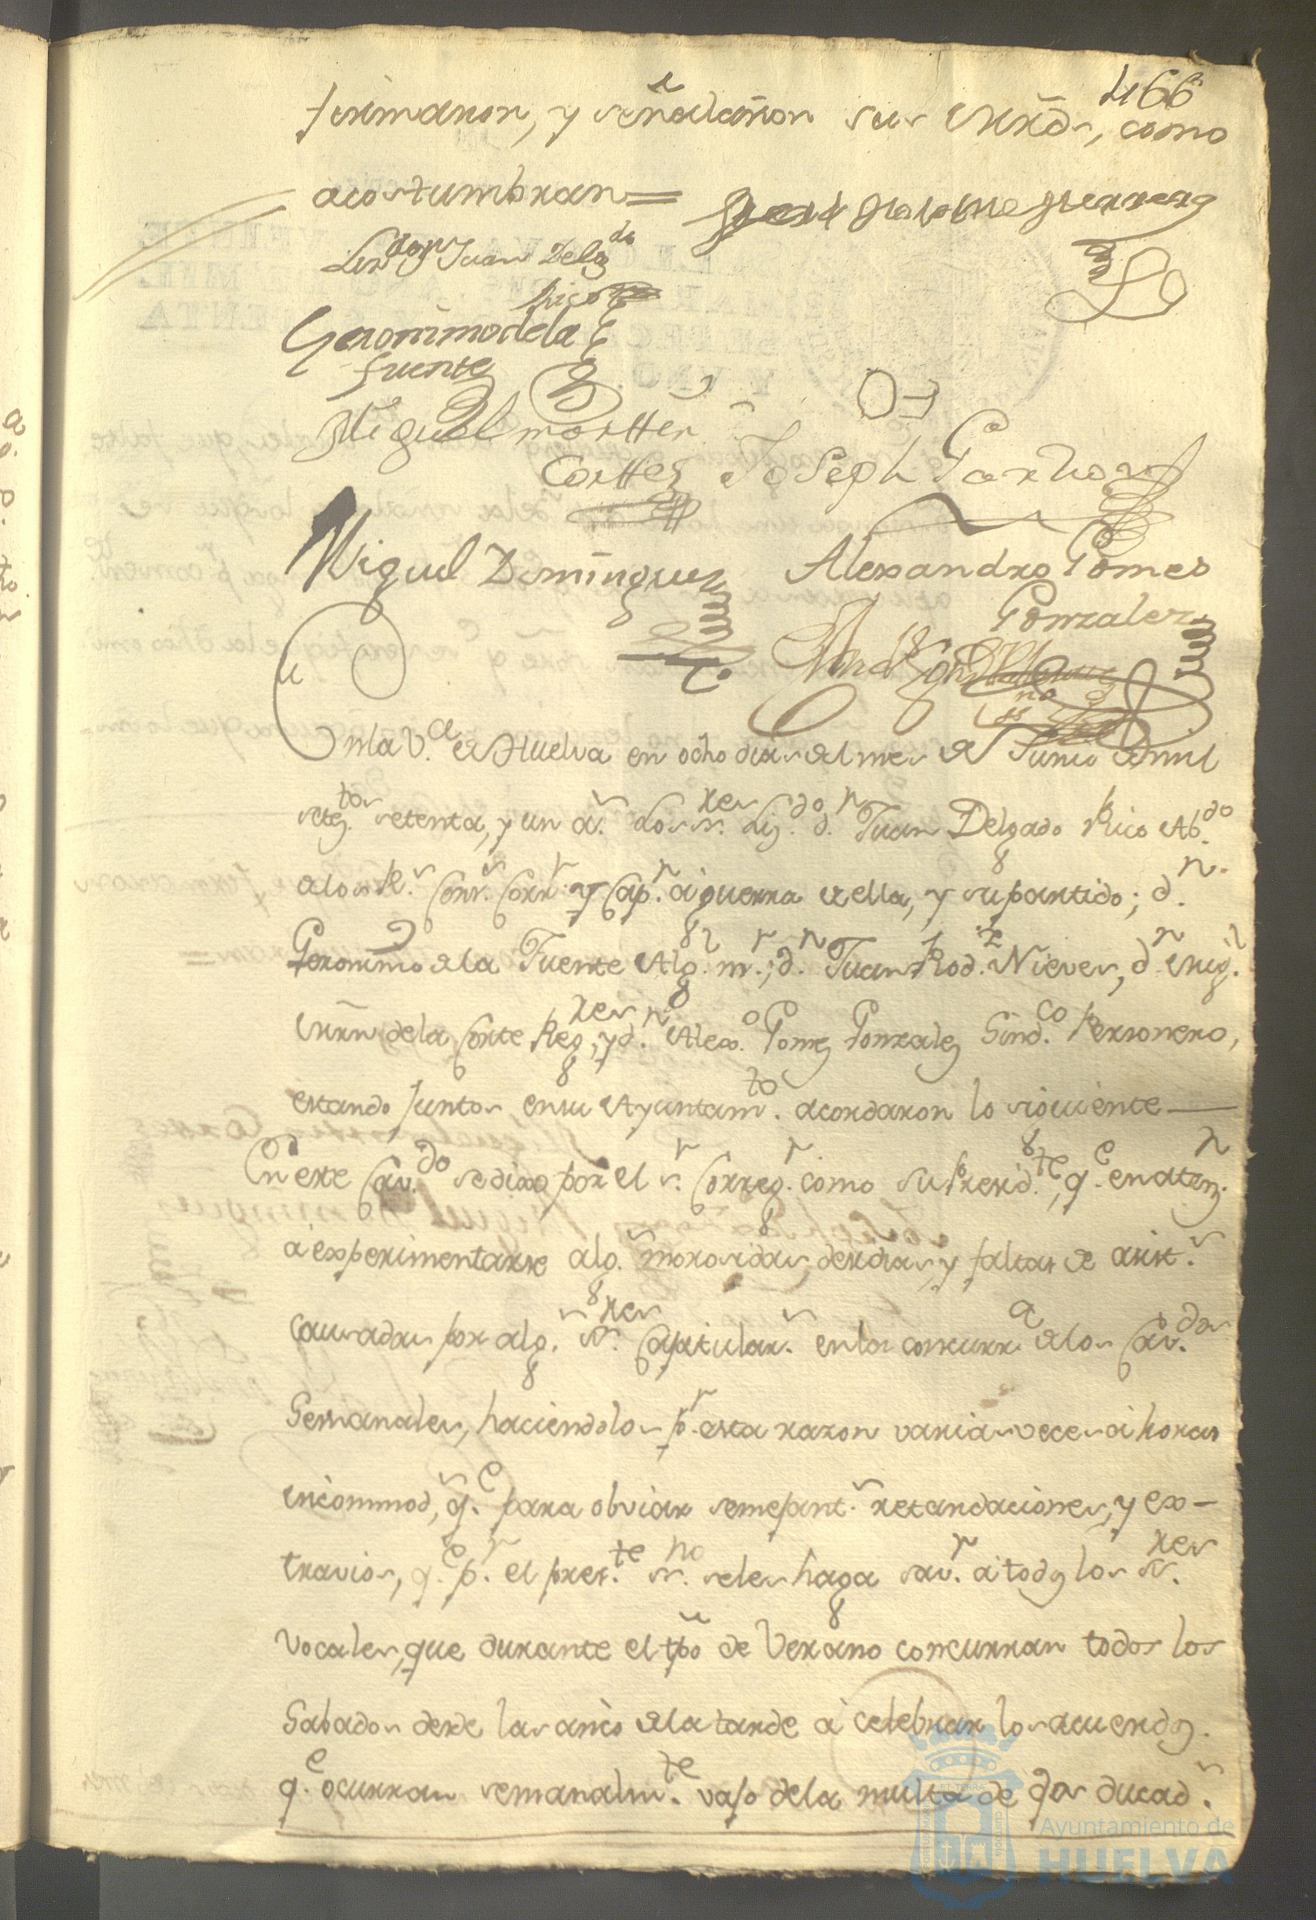 466
firmaron, y señalaron sus mrds, como
acostumbran=
Lizdo dn Juan Delgdo
Rico
Geronimo de la
fuente
Miguel mortter
Corttes
Joseph Garzon
Miguel Dominguez
Alexandro Gomes
Gonzalez
En la V.a de Huelva en ocho dias del mes de Junio de mil
seteg.tos setenta, y un a.s los s.res Liz.do d.n Juan Delgado Rico Ab.do
de los R.s Cons.s Corr.r y Cap.n a guerra de ella, y su partido; d.n
Geronimo de la Fuente Alg.l m.r; d.n Juan Rod.z Nieves, d.n Mig.l
Mrn de la Corte Reg.res, y d.n Alex.o Gomez Gonzalez Sind.co Personero,
estando juntos en su Ayuntam.to acordaron lo siguiente
En este Cav.do se dixo por el s.r Correg.r como su Presid.te, q.e en atenz.n
a experimentarse alg.s morosidas, desidias, y faltas de asist.s
causadas por alg.s s.res Capitular.s en la concurr.a de los Cav.dos
Semanales, haciendolos p.r esta razon varias veces a horas
incommod.s, q.e para obviar semejant.s retardaciones, y ex-
travios, q.e p.r el pres.te ss.no se les haga sav.r a todos los s.res
Vocales, que durante el tpo de Verano concurran todos los
Sabados desde las cinco de la tarde a celebrar los acuerdos.
q.e ocurran semanalm.te vajo de la multa de dos ducad.s
Ayuntamiento de
HUELVA